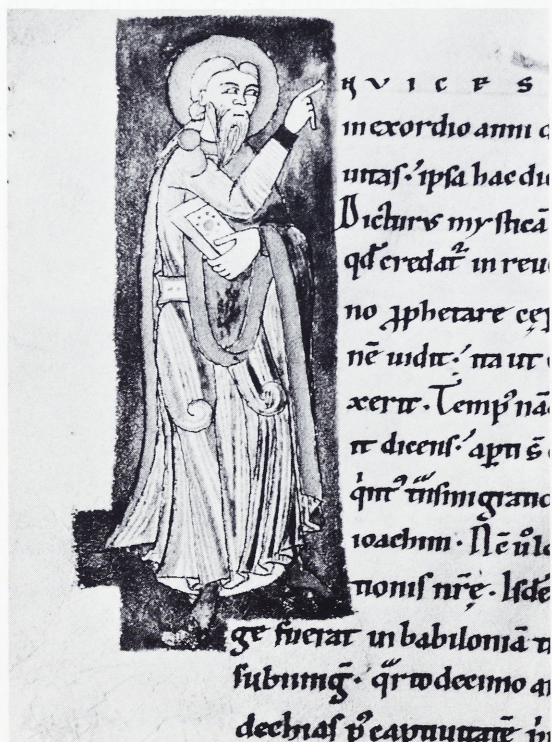 R V I C E S
in exordio anni
uitas. ipsa hac die
Dicturus mysticā
qđ credat in reu
no ꝓphetare cęp
nē uidit. ita ut
xerit. Temp' nā
it dicens. apti s̄
ioachim. Nē
tionis nr̄ę. Isde
ge fuerat in babiloniā
subiunḡ. qͣrtodecimo
dechias p' captiuitatē